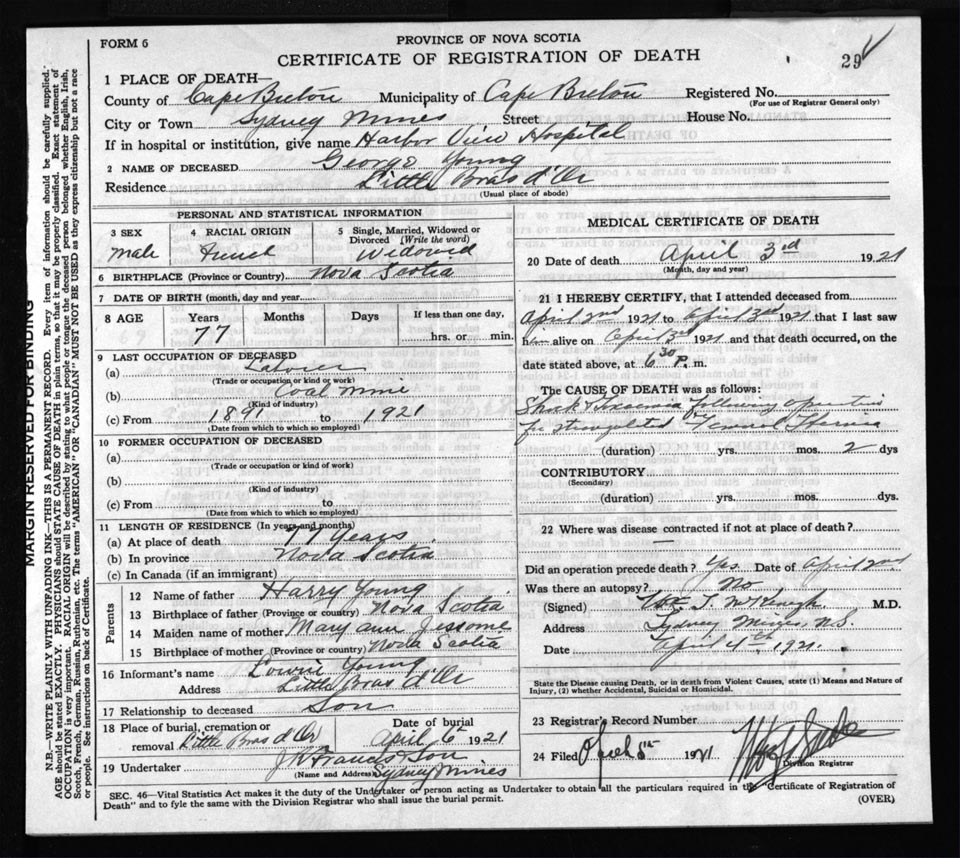 FORM 6
PROVINCE OF NOVA SCOTIA
CERTIFICATE OF REGISTRATION OF DEATH
29
1 PLACE OF DEATH—
County of Cape Breton Municipality of Cape Breton Registered No.
(For use of Registrar General only)
City or Town Sydney Mines Street House No.
If in hospital or institution, give name Harbor View Hospital
2 NAME OF DECEASED George Young
Residence Little Bras d'Or
(Usual place of abode)
PERSONAL AND STATISTICAL INFORMATION
3 SEX
male
4 RACIAL ORIGIN
French
5 Single, Married, Widowed or Divorced (Write the word)
Widowed
6 BIRTHPLACE (Province or Country) Nova Scotia
7 DATE OF BIRTH (month, day and year
8 AGE Years Months Days If less than one day,
77 hrs. or min.
9 LAST OCCUPATION OF DECEASED
(a) Laborer
(Trade or occupation or kind or work)
(b) Coal Mine
(Kind of industry)
(c) From 1891 to 1921
(Date from which to which so employed)
10 FORMER OCCUPATION OF DECEASED
(a)
(Trade or occupation or kind of work)
(b)
(Kind of industry)
(c) From to
(Date from which to which so employed)
11 LENGTH OF RESIDENCE (In years and months)
(a) At place of death 77 years
(b) In province Nova Scotia
(c) In Canada (if an immigrant)
Parents
12 Name of father Harry Young
13 Birthplace of father (Province or country) Nova Scotia
14 Maiden name of mother Mary Ann Jessome
15 Birthplace of mother (Province or country) Nova Scotia
16 Informant's name Young
Address Little Bras d'Or
17 Relationship to deceased Son
18 Place of burial, cremation or removal Little Bras d'Or
Date of burial April 6th 1921
19 Undertaker Francis & Son
(Name and Address) Sydney Mines
MEDICAL CERTIFICATE OF DEATH
20 Date of death April 3rd 1921
(Month, day and year)
21 I HEREBY CERTIFY, that I attended deceased from
April 2nd 1921 to April 3rd 1921 that I last saw
him alive on April 3rd 1921 and that death occurred, on the
date stated above, at 6 30 P. m.
The CAUSE OF DEATH was as follows:
Shock & following operation
for strangulated Femoral Hernia
(duration) yrs. mos. 2 dys
CONTRIBUTORY
(Secondary)
(duration) yrs. mos. dys.
22 Where was disease contracted if not at place of death?
—
Did an operation precede death? Yes Date of April 2nd
Was there an autopsy? No
(Signed) M.D.
Address Sydney Mines, N.S.
Date April 4th 1921.
State the Disease causing Death, or in death from Violent Causes, state (1) Means and Nature of
Injury, (2) whether Accidental, Suicidal or Homicidal.
23 Registrar's Record Number
24 Filed 1921
Division Registrar
SEC. 46—Vital Statistics Act makes it the duty of the Undertaker or person acting as Undertaker to obtain all the particulars required in the Certificate of Registration of
Death" and to fyle the same with the Division Registrar who shall issue the burial permit.
(OVER)
MARGIN RESERVED FOR BINDING
N.B.—WRITE PLAINLY WITH UNFADING INK—THIS IS A PERMANENT RECORD. Every item of information should be carefully supplied.
AGE should be stated EXACTLY. PHYSICIANS should STATE CAUSE OF DEATH in plain terms, so that it may be properly classified. Exact statement of
OCCUPATION is very important. RACIAL ORIGIN will be described by stating to what people or tongue the deceased person belonged whether English, Irish,
Scotch, French, German, Russian, Ruthenian, etc. The terms "AMERICAN" OR "CANADIAN" MUST NOT BE USED as they express citizenship but not a race
or people. See instructions on back of Certificate.